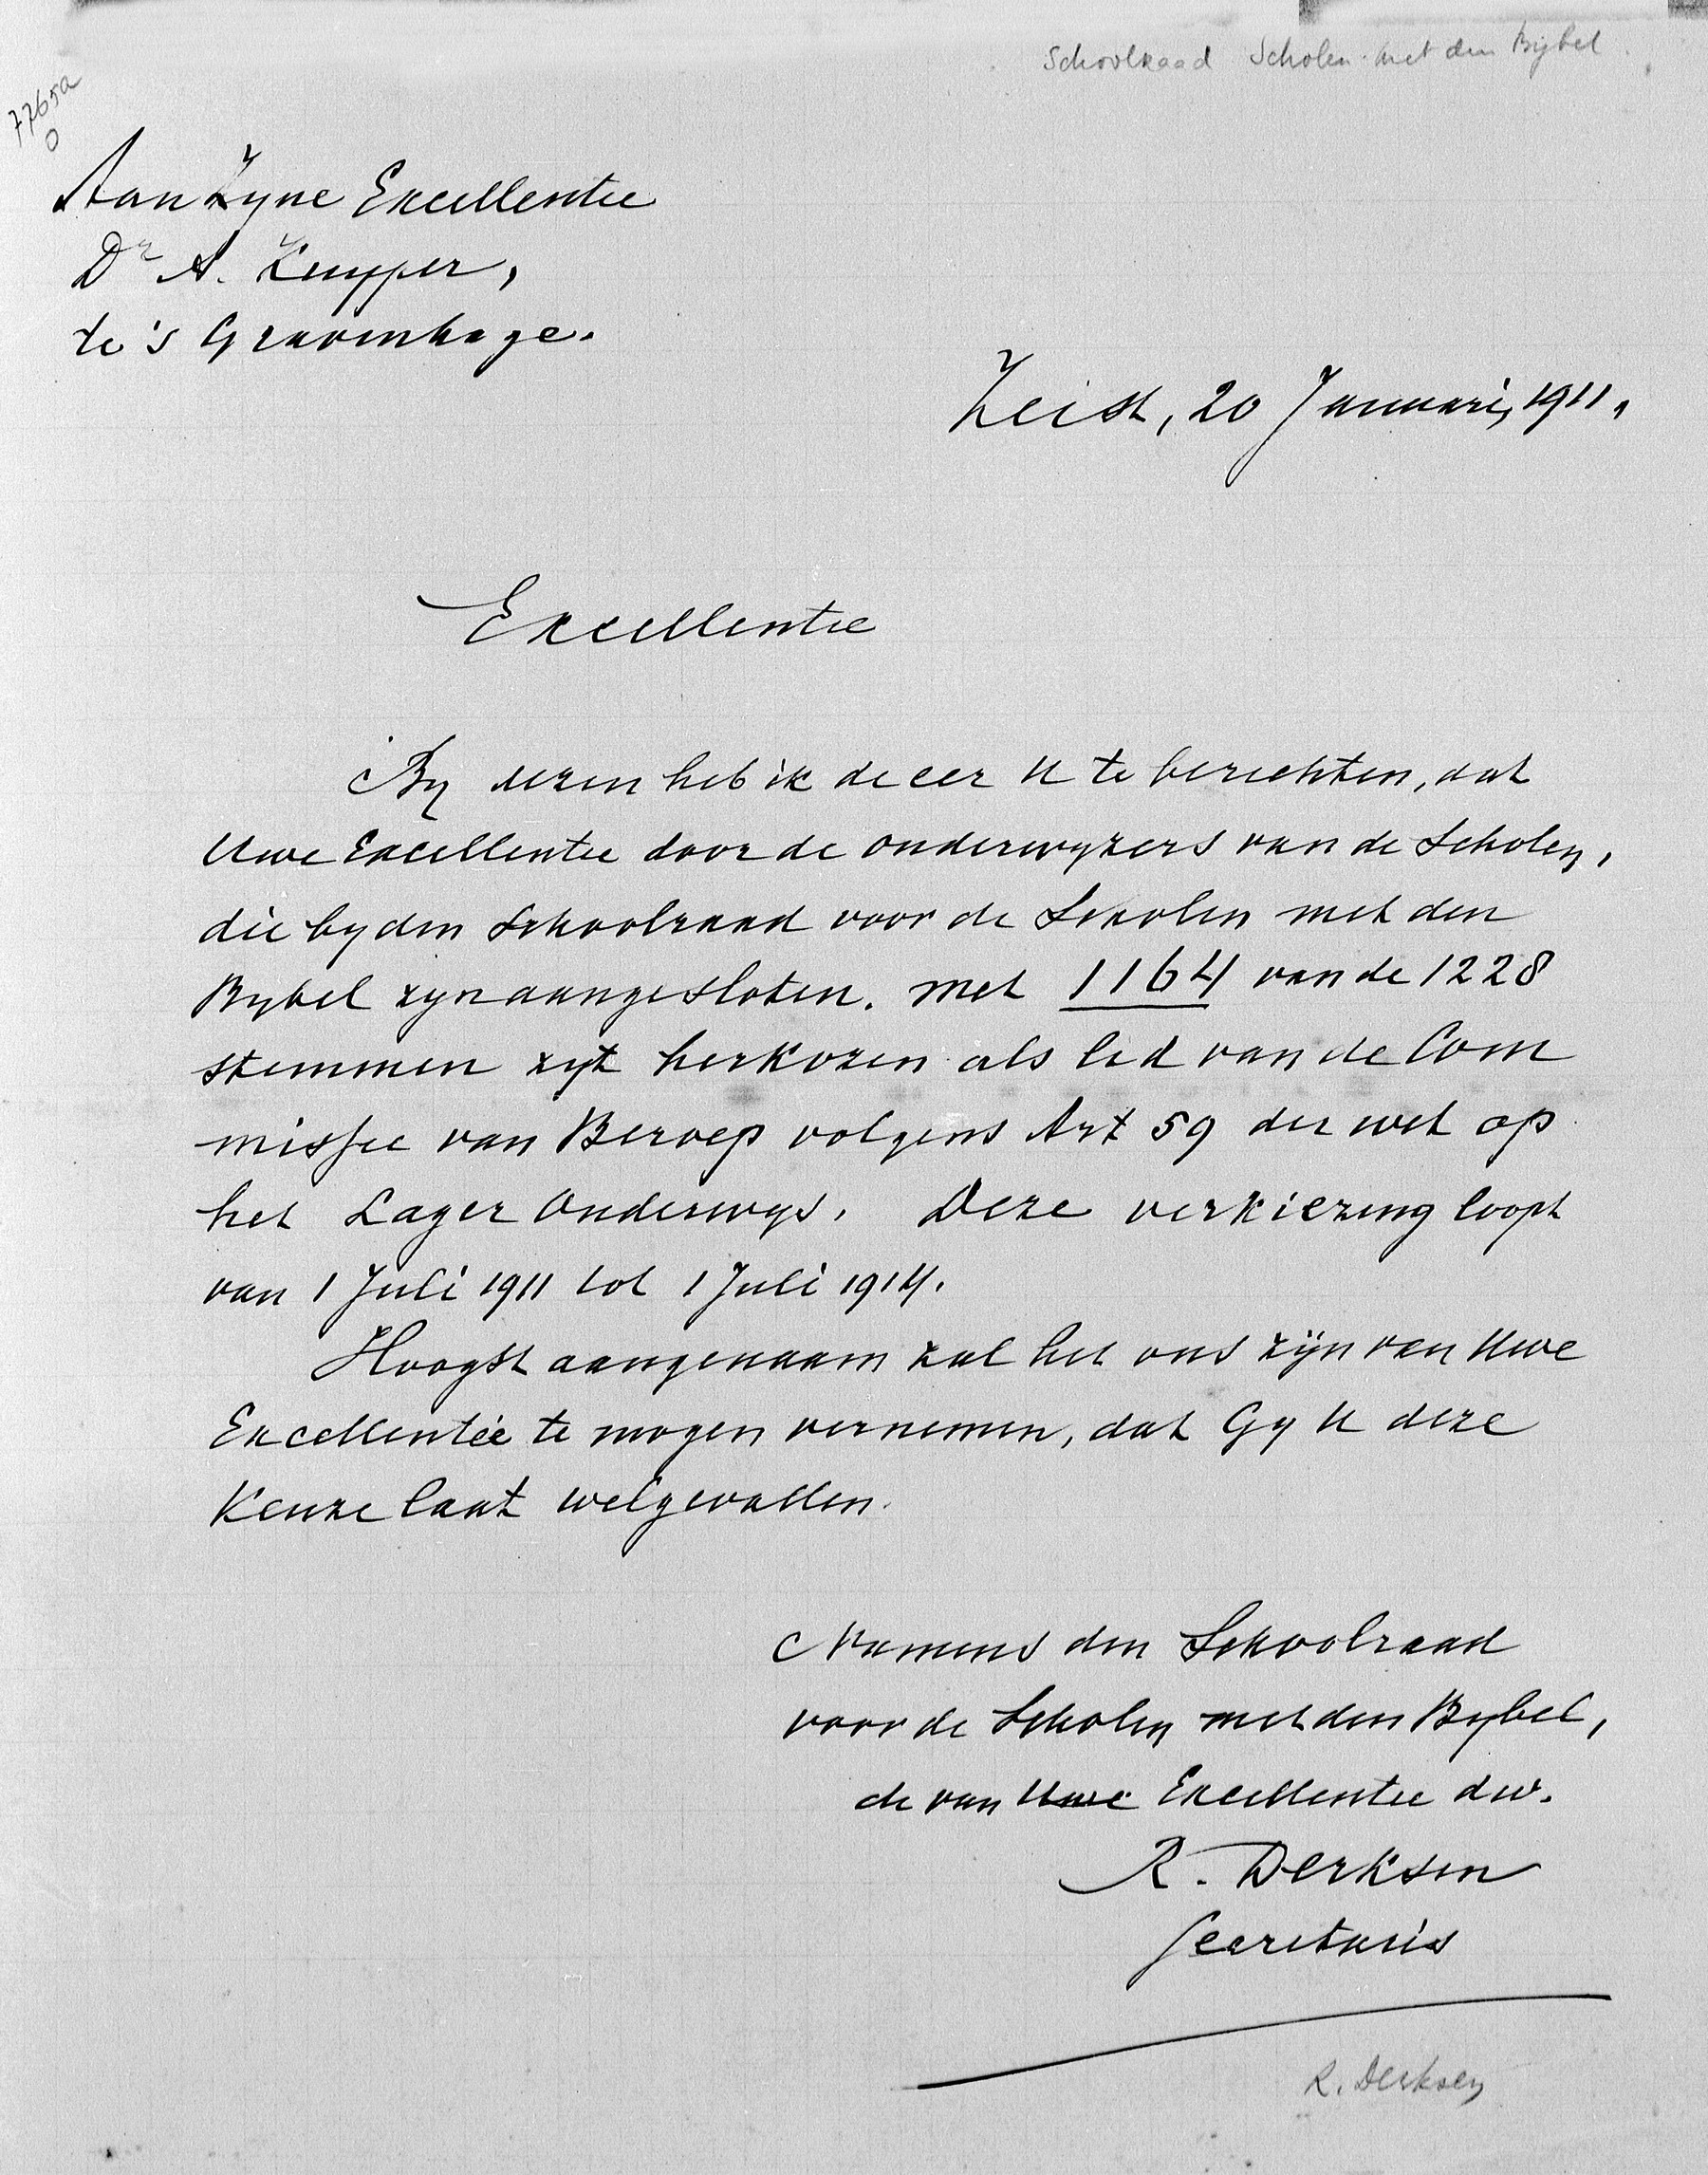 Schoolraad Scholen met den Bijbel
7765a
0
Aan Zyne Excellentie
Dr A. Kuyper,
te 's Gravenhage.
Zeist, 20 Januari, 1911.
Excellentie
By dezen heb ik de eer U te berichten, dat
Uwe Excellentie door de onderwyzers van de Scholen,
die by den Schoolraad voor de Scholen met den
Bybel zyn aangesloten. met 1164 van de 1228
stemmen zyt herkozen als lid van de Com
missie van Beroep volgens Art 59 der wet op
het Lager Onderwys. Deze verkiezing loopt
van 1 Juli 1911 tot 1 Juli 1914.
Hoogst aangenaam zal het ons zijn van Uwe
Excellentie te mogen vernemen, dat Gy U deze
Keuze laat welgevallen.
Namens den Schoolraad
voor de Scholen met den Bybel,
de van Uwe Excellentie dw.
R. Derksen
Secretaris
R. Derksen